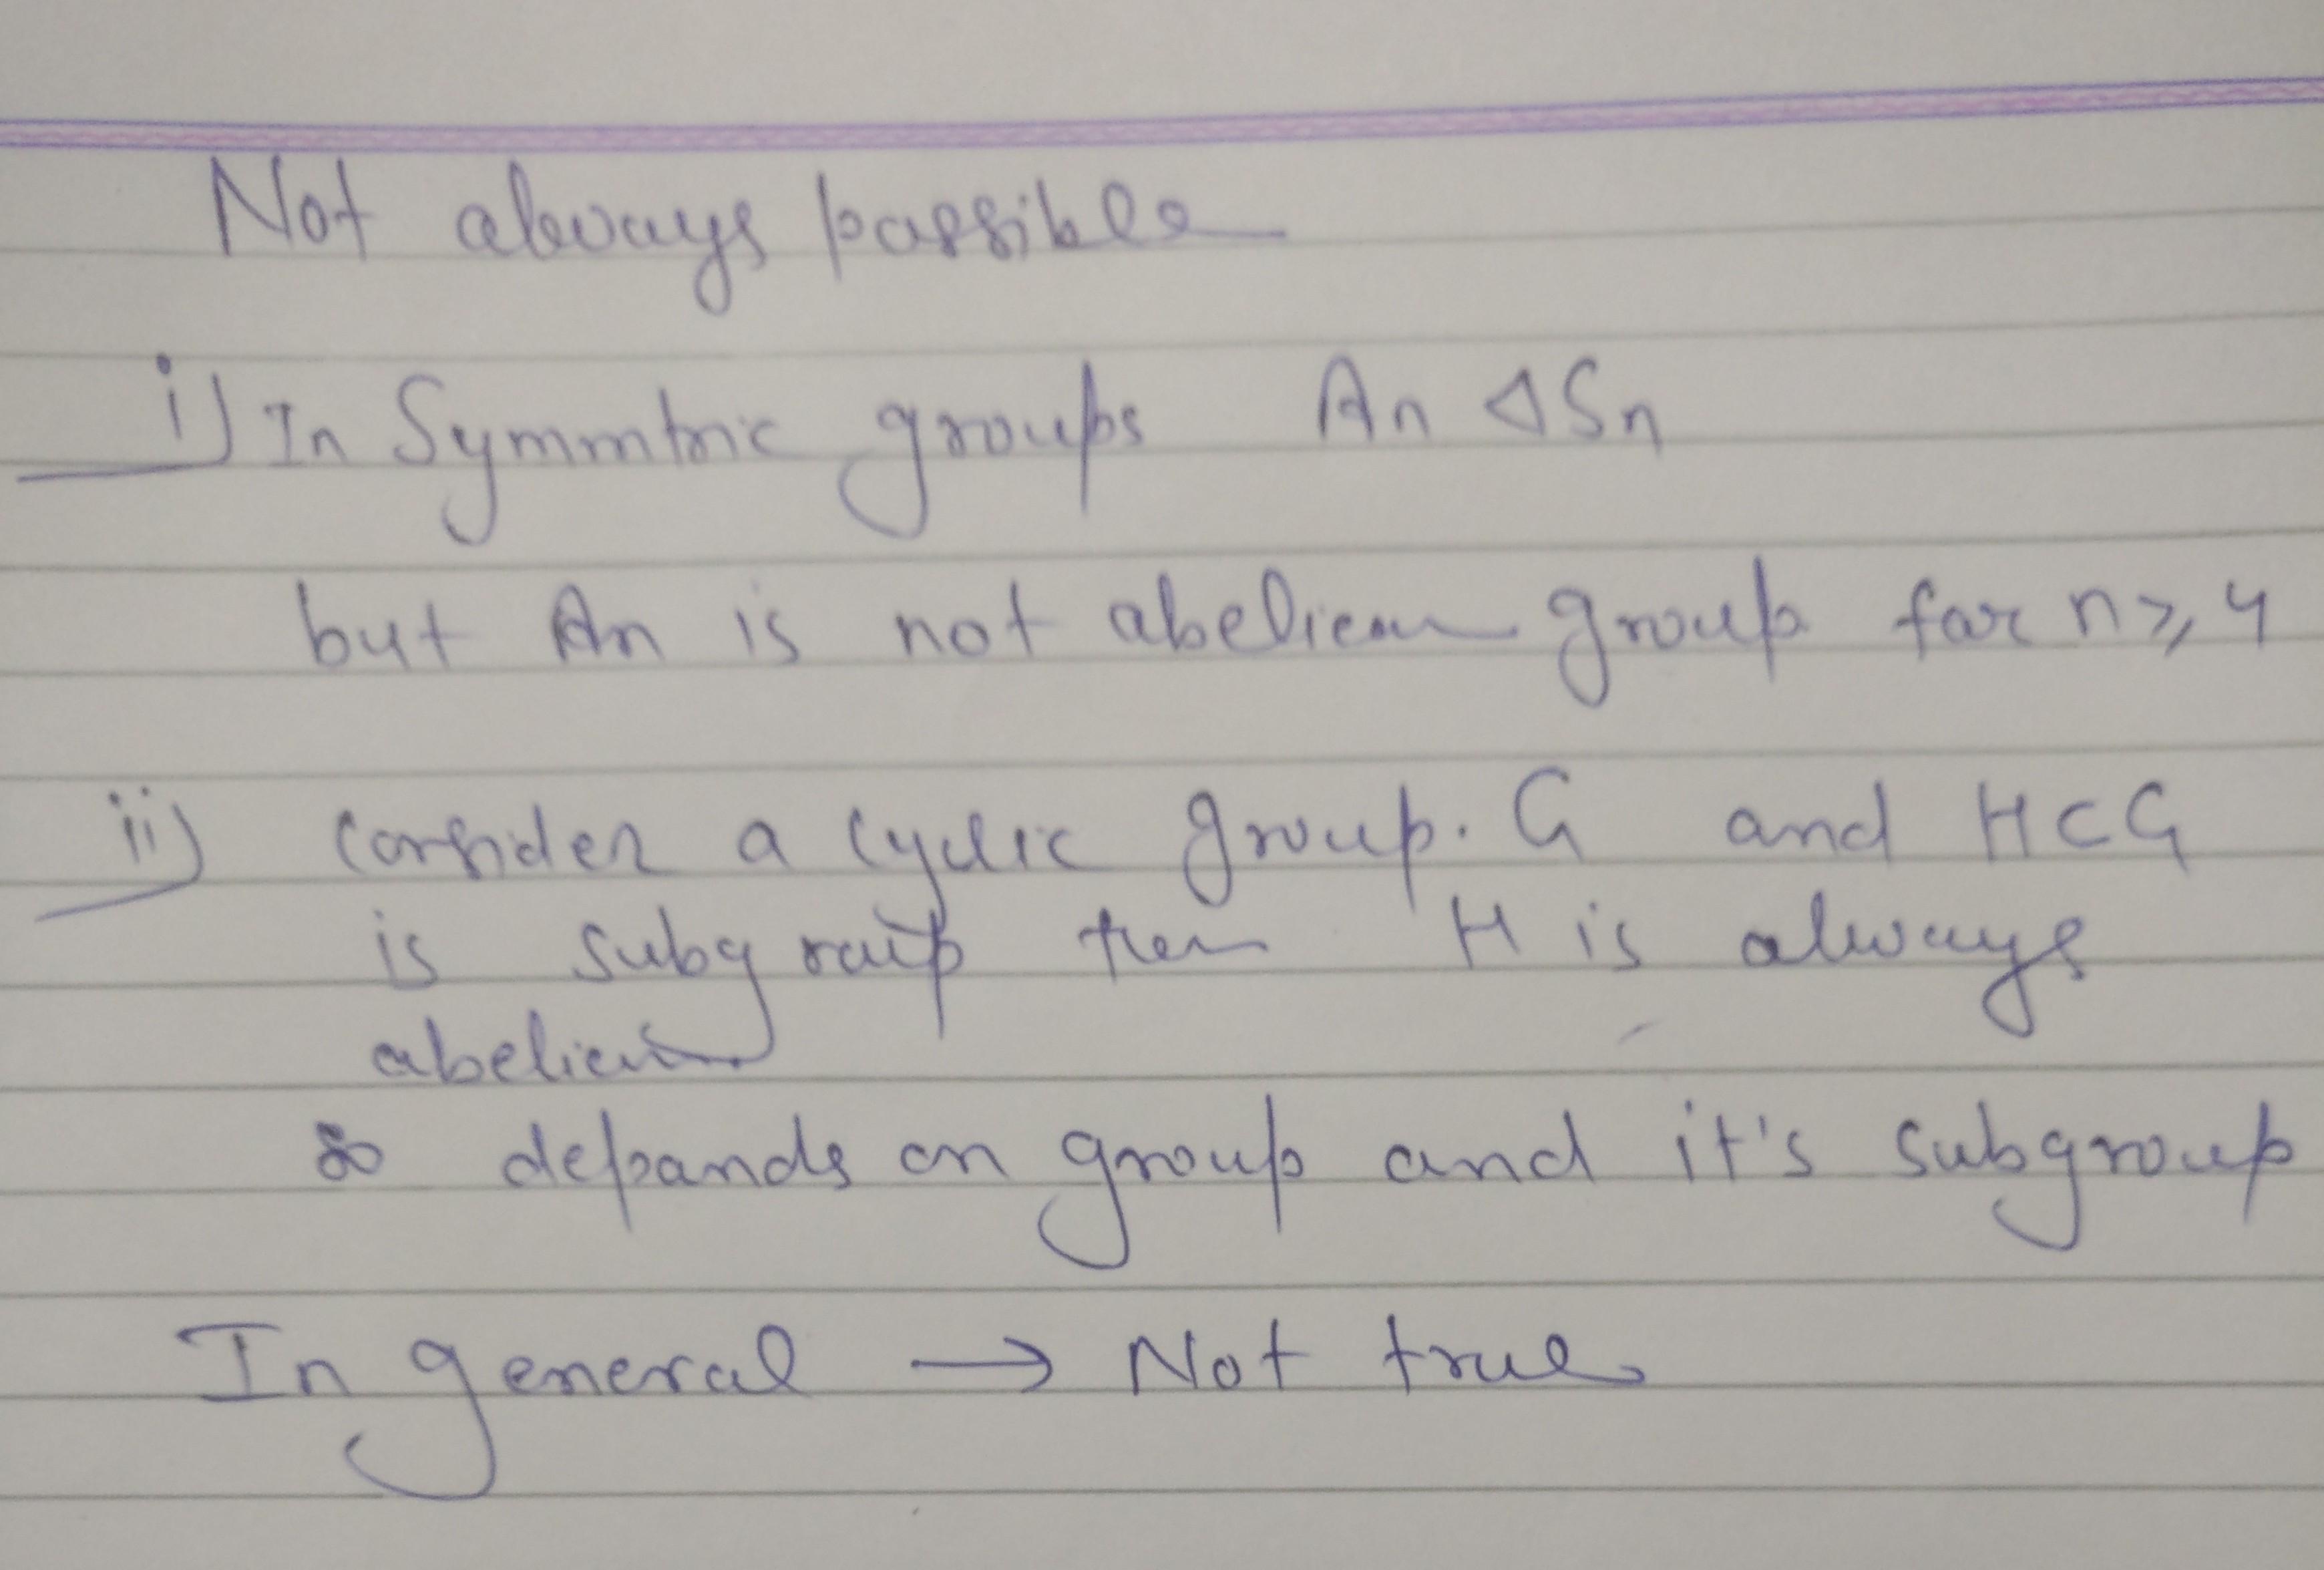 Not always possible
i) In Symmtric groups An ⊲ Sn
but An is not abelian group for n ≥ 4
ii) consider a cyclic group. G and H ⊂ G
is subgroup then H is always
abelian
so depands on group and it's subgroup
In general → Not true